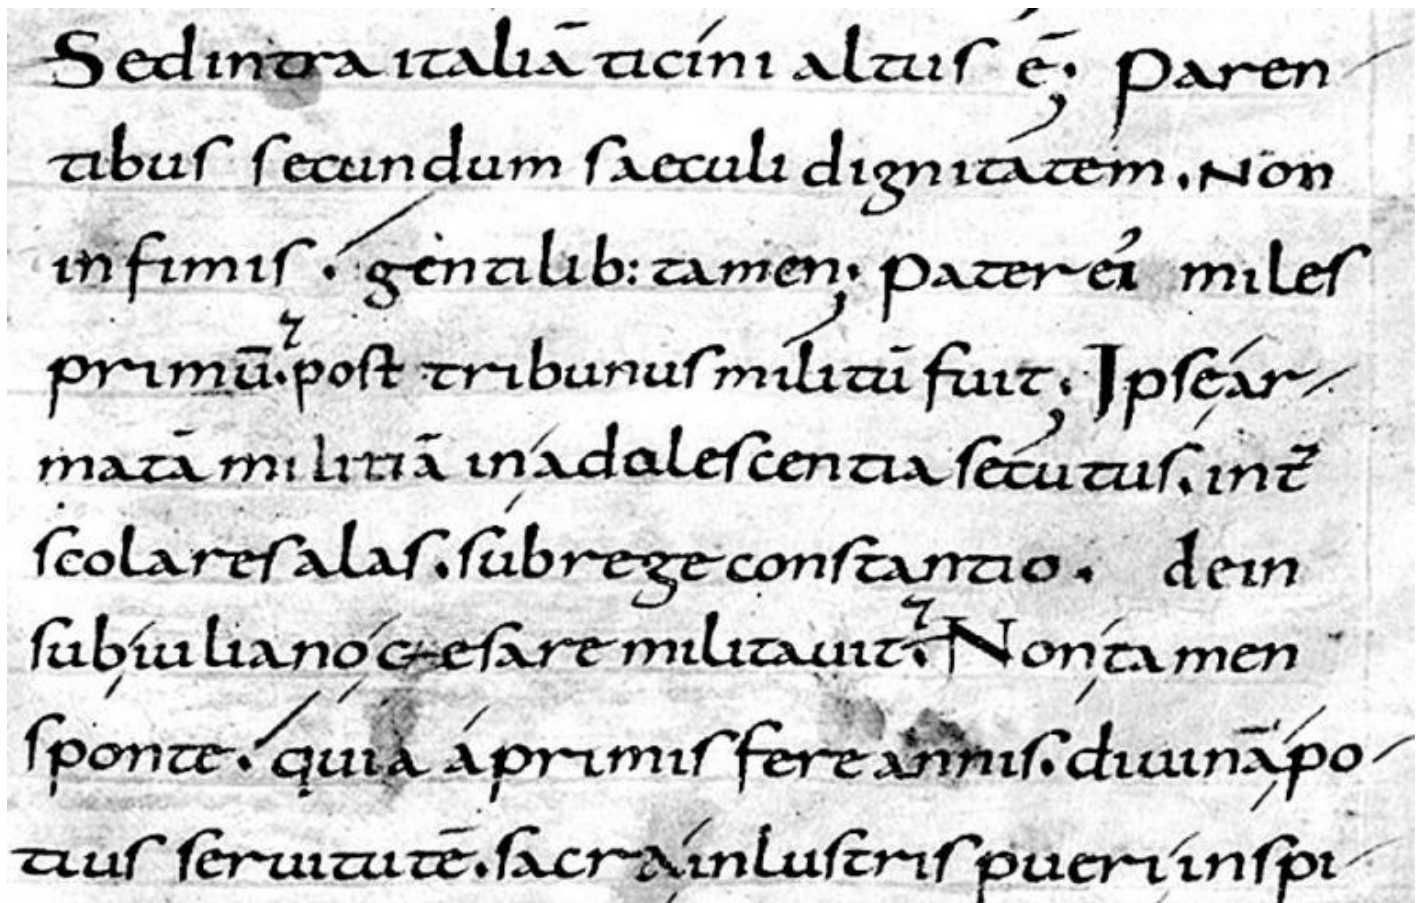 Sed intra italiā ticini altus ē; Paren-
tibus secundum saeculi dignitatem. Non
infimis. gentilib: tamen; Pater ei' miles
primū. post tribunus militū fuit; Ipse ar-
matā militiā in adolescentia secutus. int̄
scolares alas. sub rege constantio. dein
sub iuliano cęsare militauit. Non tamen
sponte. quia a primis fere annis. diuinā po-
tius seruitutē. sacra inlustris pueri inspi-